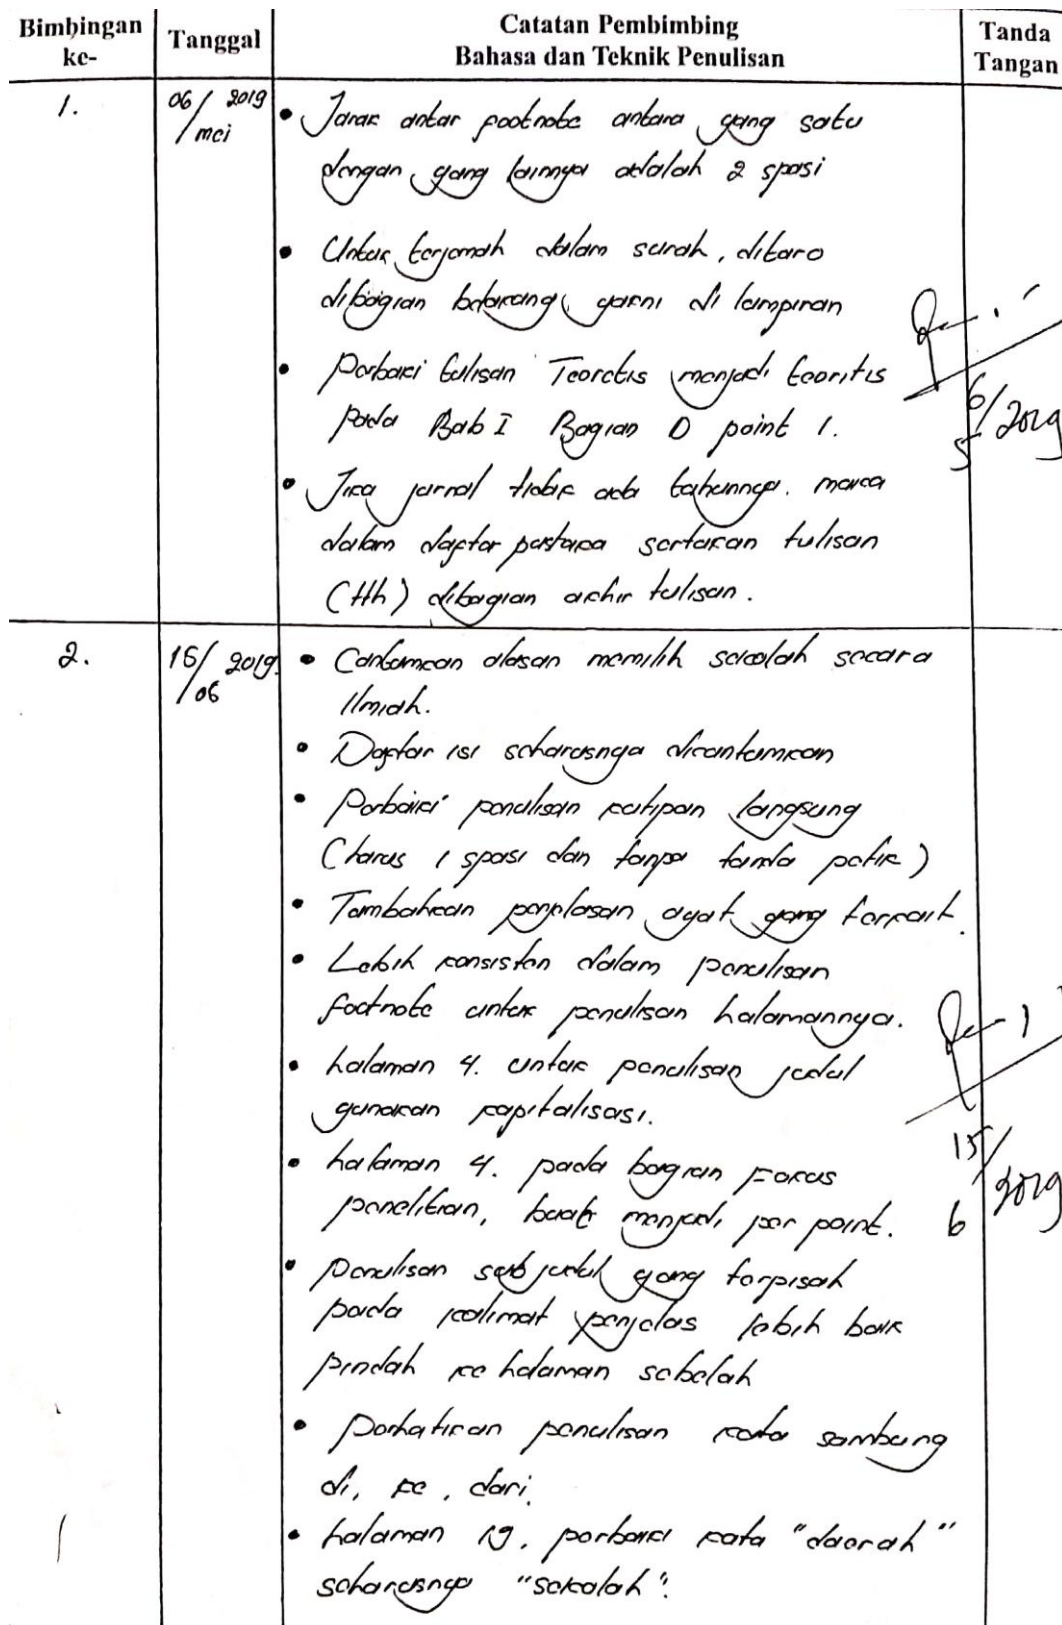 Bimbingan ke-
Tanggal
Catatan Pembimbing
Bahasa dan Teknik Penulisan
Tanda Tangan
1.
06/mei 2019
• Jarak antar footnote antara yang satu
dengan yang lainnya adalah 2 spasi
• Untuk terjemah dalam surah, ditaro
dibagian belakang, yakni di lampiran
• Perbaiki tulisan Teoretis menjadi teoritis
pada Bab I Bagian D point 1.
• Jika jurnal tidak ada tahunnya. maka
dalam daftar pustaka sertakan tulisan
(tth) dibagian akhir tulisan.
6/5 2019
2.
15/06 2019
• Cantumkan alasan memilih sekolah secara
Ilmiah.
• Daftar isi seharusnya dicantumkan
• Perbaiki penulisan kutipan langsung
(harus 1 spasi dan tanpa tanda petik)
• Tambahkan penjelasan ayat yang terkait.
• Lebih konsisten dalam penulisan
footnote untuk penulisan halamannya.
• halaman 4. untuk penulisan judul
gunakan kapitalisasi.
• halaman 4. pada bagian Fokus
penelitian, buat menjadi per point.
• penulisan sub judul yang terpisah
pada kalimat penjelas lebih baik
pindah ke halaman sebelah
• Perhatikan penulisan kata sambung
di, ke, dari.
• halaman 19. perbaiki kata "daerah"
seharusnya "sekolah".
15/6 2019